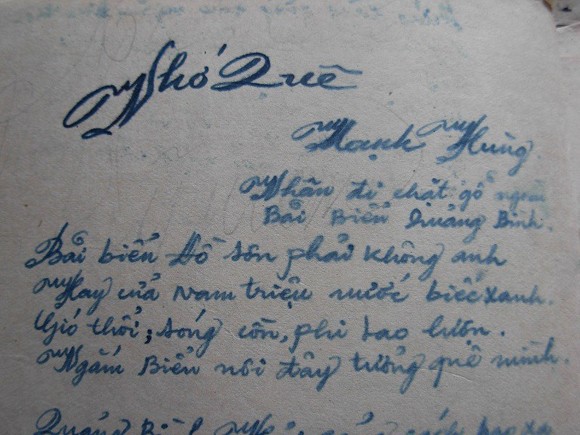 Nhớ Quê
Mạnh Hùng.
Nhân đi chặt gỗ ngoài
Bải Biển Quảng Bình.
Bải biển Đồ sơn phải không anh
Hay cửa Nam triệu nước biếc xanh.
Gió thổi, sóng cồn, phi lao lướn.
Ngắm Biển nơi đây tưởng quê mình.
Quảng Bình